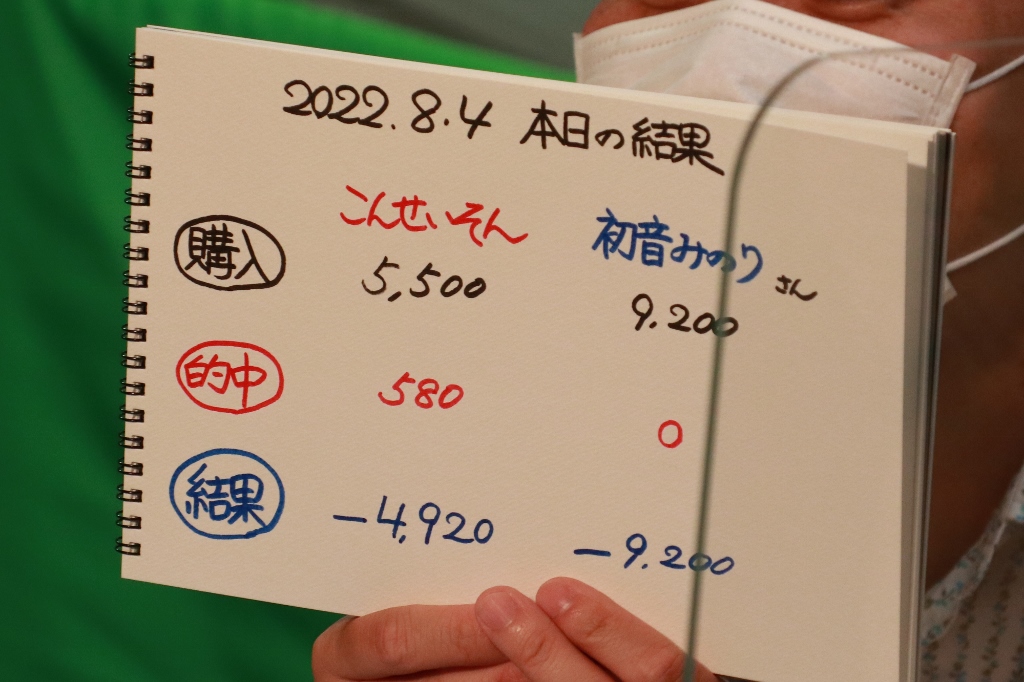 2022.8.4 本日の結果
こんせいそん 初音みのりさん
購入 5,500 9.200
的中 580 0
結果 -4,920 -9.200